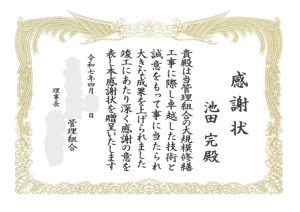 感謝状
池田 完殿
貴殿は当管理組合の大規模修繕
工事に際し卓越した技術と
誠意をもって事に当たられ
大きな成果を上げられました
竣工にあたり深く感謝の意を
表し本感謝状を贈呈いたします
令和七年四月 日
管理組合
理事長